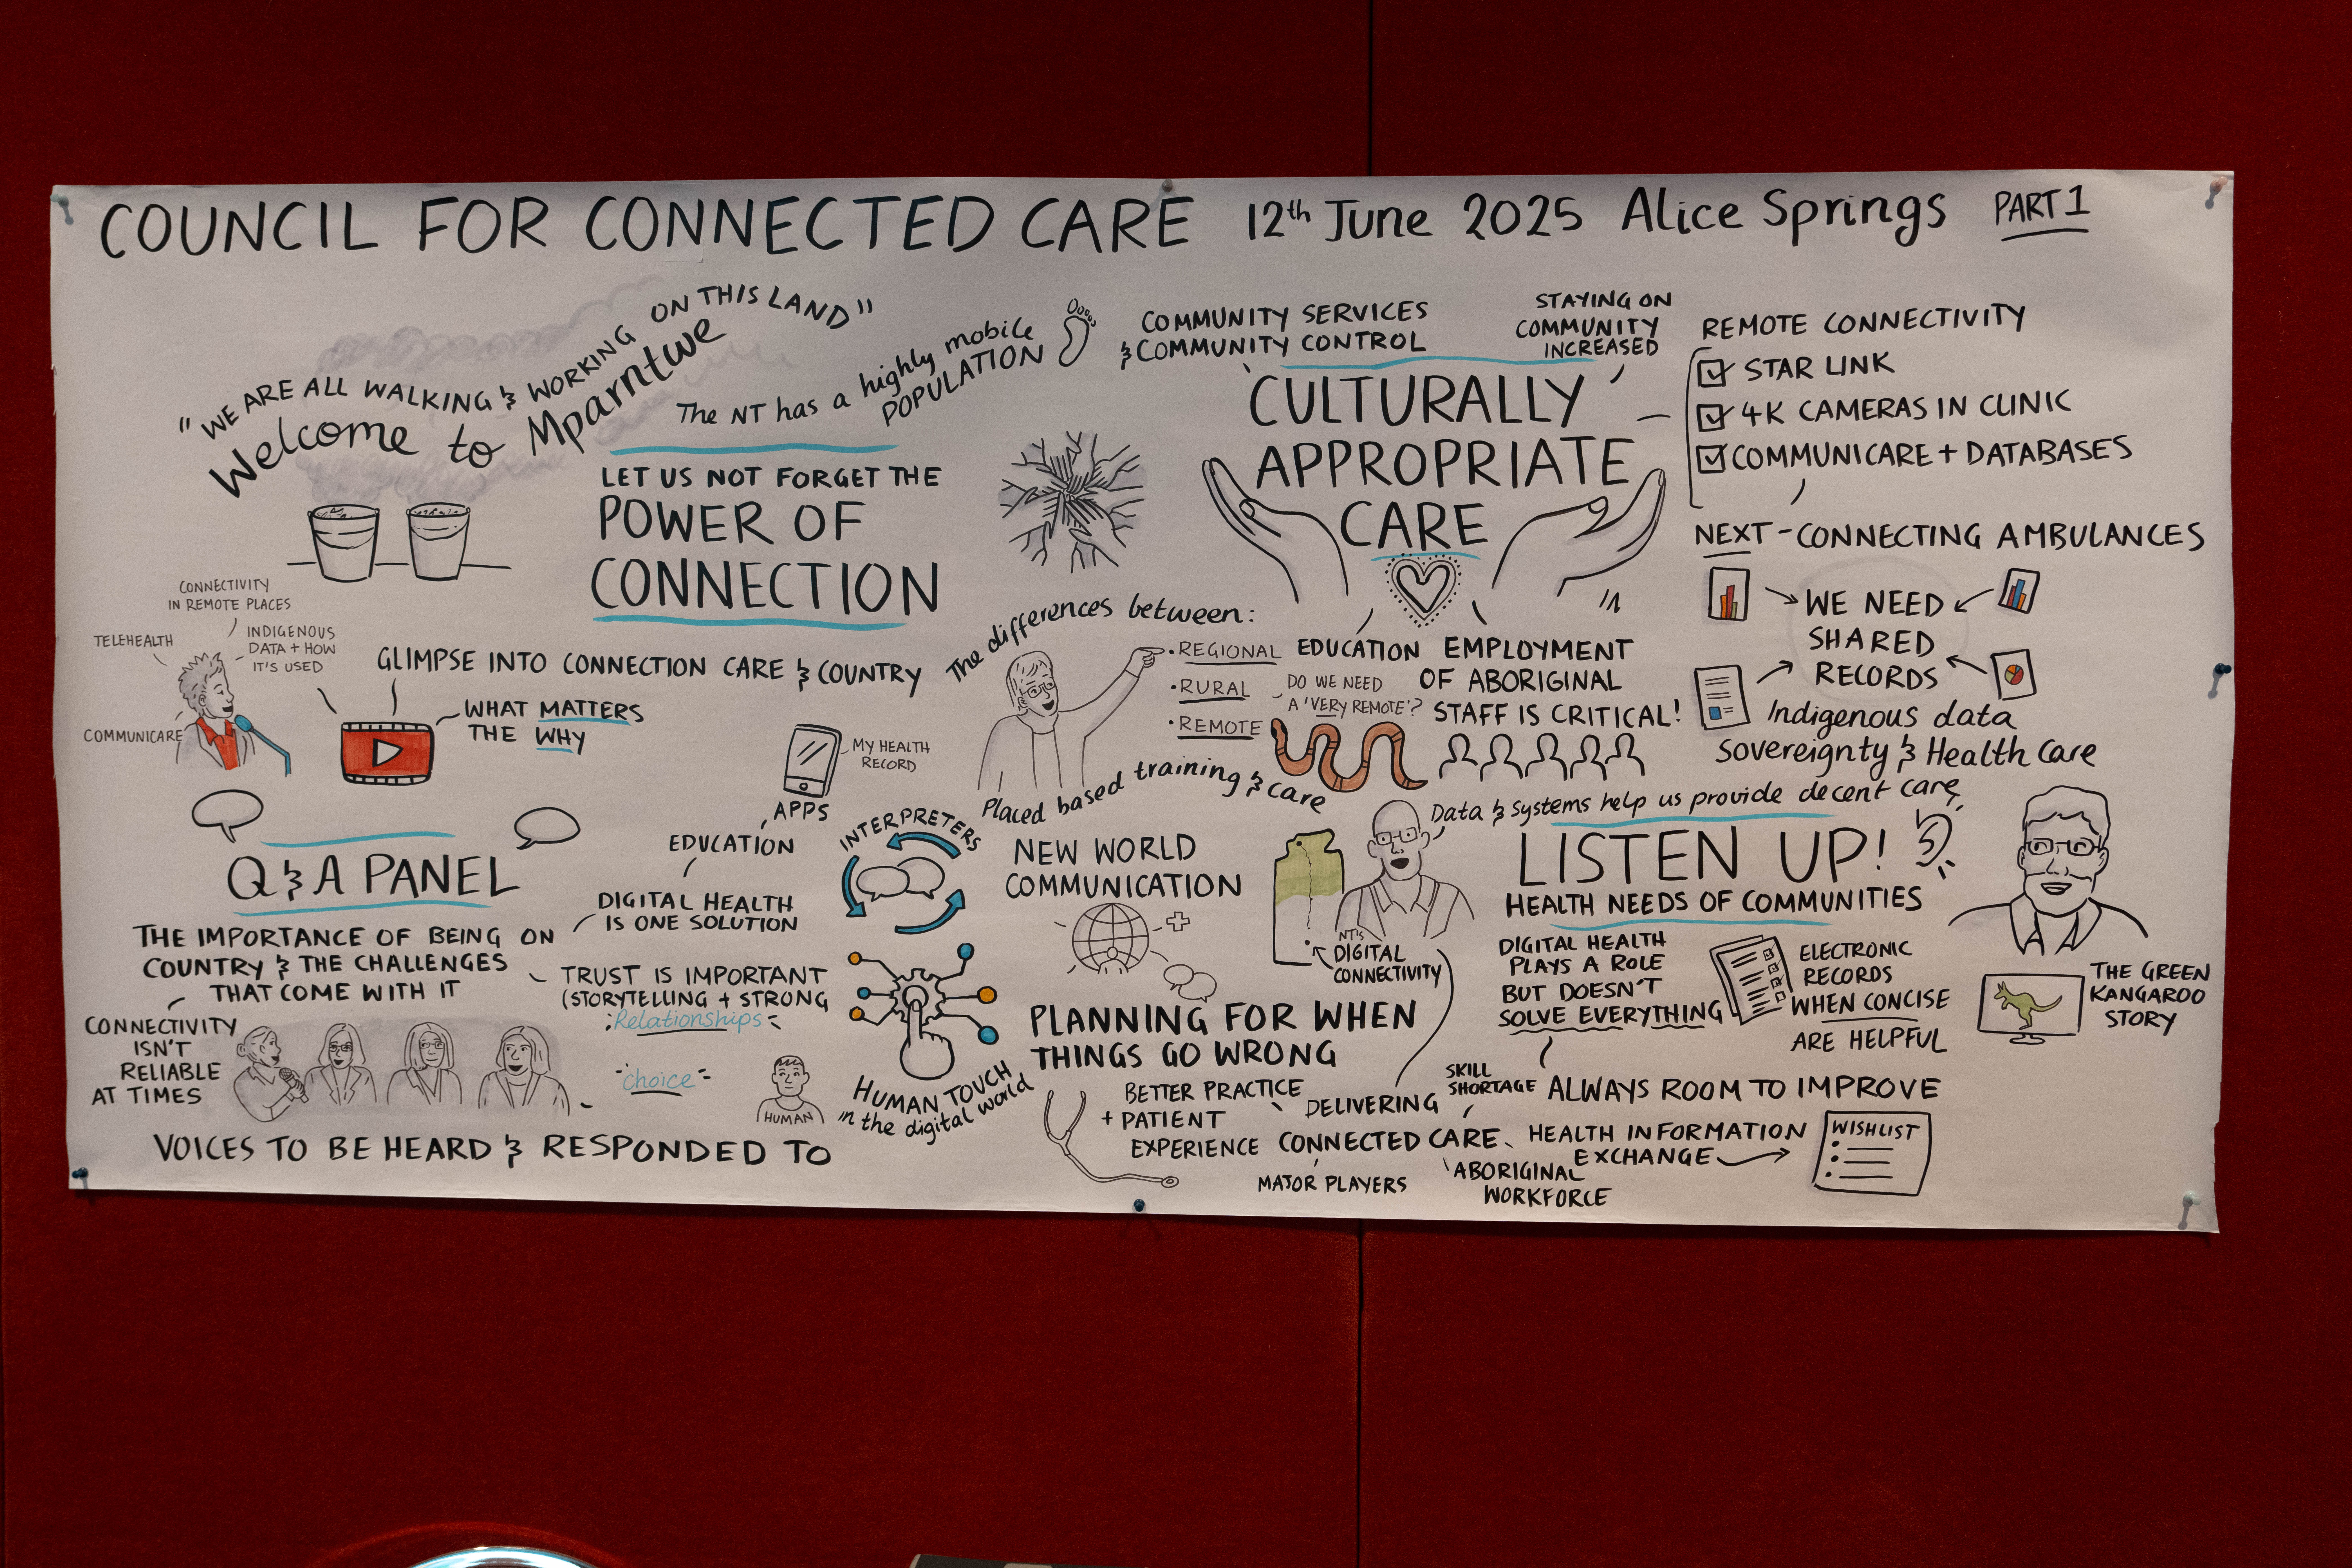 COUNCIL FOR CONNECTED CARE 12th June 2025 Alice Springs PART 1
"WE ARE ALL WALKING & WORKING ON THIS LAND"
Welcome to Mparntwe
The NT has a highly mobile
POPULATION
LET US NOT FORGET THE
POWER OF
CONNECTION
CONNECTIVITY
IN REMOTE PLACES
TELEHEALTH
INDIGENOUS
DATA + HOW
IT'S USED
COMMUNICARE
GLIMPSE INTO CONNECTION CARE & COUNTRY
WHAT MATTERS
THE WHY
Q & A PANEL
THE IMPORTANCE OF BEING ON
COUNTRY & THE CHALLENGES
THAT COME WITH IT
CONNECTIVITY
ISN'T
RELIABLE
AT TIMES
VOICES TO BE HEARD & RESPONDED TO
MY HEALTH
RECORD
APPS
EDUCATION
DIGITAL HEALTH
IS ONE SOLUTION
TRUST IS IMPORTANT
(STORYTELLING + STRONG
Relationships
choice
HUMAN
INTERPRETERS
HUMAN TOUCH
in the digital world
COMMUNITY SERVICES
& COMMUNITY CONTROL
STAYING ON
COMMUNITY
INCREASED
CULTURALLY
APPROPRIATE
CARE
The differences between:
• REGIONAL
• RURAL
• REMOTE
DO WE NEED
A 'VERY REMOTE'?
EDUCATION
EMPLOYMENT
OF ABORIGINAL
STAFF IS CRITICAL!
Placed based training & care
NEW WORLD
COMMUNICATION
NT'S
DIGITAL
CONNECTIVITY
PLANNING FOR WHEN
THINGS GO WRONG
BETTER PRACTICE
+ PATIENT
EXPERIENCE
DELIVERING
CONNECTED CARE
SKILL
SHORTAGE
MAJOR PLAYERS
ABORIGINAL
WORKFORCE
REMOTE CONNECTIVITY
STAR LINK
4K CAMERAS IN CLINIC
COMMUNICARE + DATABASES
NEXT - CONNECTING AMBULANCES
WE NEED
SHARED
RECORDS
Indigenous data
Sovereignty & Health Care
Data & systems help us provide decent care
LISTEN UP!
HEALTH NEEDS OF COMMUNITIES
DIGITAL HEALTH
PLAYS A ROLE
BUT DOESN'T
SOLVE EVERYTHING
ELECTRONIC
RECORDS
WHEN CONCISE
ARE HELPFUL
THE GREEN
KANGAROO
STORY
ALWAYS ROOM TO IMPROVE
HEALTH INFORMATION
EXCHANGE
WISHLIST